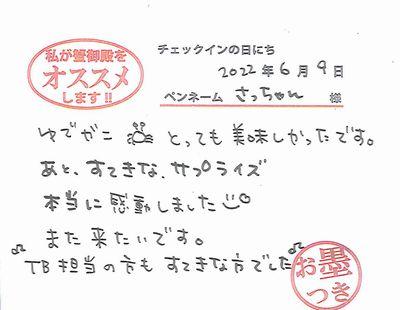 私が管御殿を
オススメ
します!!
チェックインの日にち
2022年6月9日
ペンネーム さっちゃん 様
ゆでガニ とっても美味しかったです。
あと、すてきな、サプライズ
本当に感動しました
また来たいです。
♫TB担当の方もすてきな方でした♫
お墨
つき